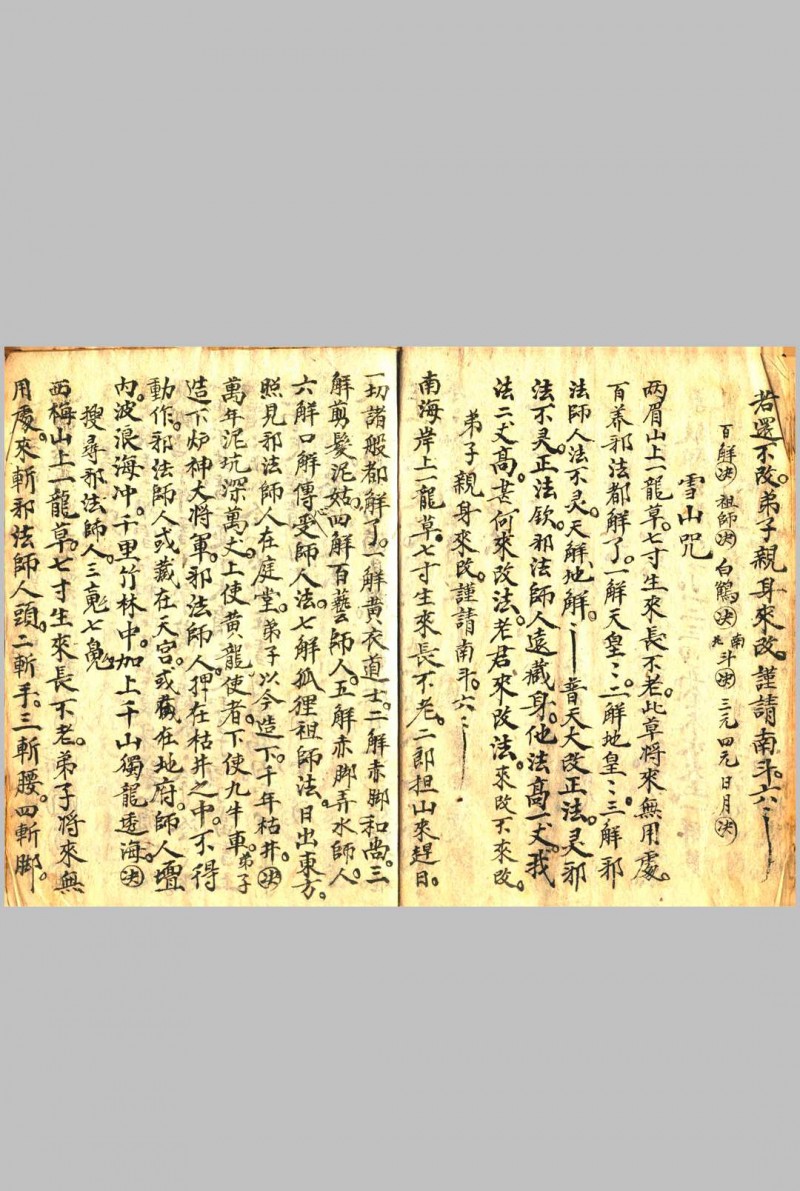 若還不改。弟子親身來改。謹請南斗。六〻
百解决 祖師决 白鶴决 南北斗决 三元四元日月决
雪山咒
两眉山上一龍草。七寸生來長不老。此草將來無用處。
百养邪法都解了。一解天皇〻。二解地皇〻。三解邪
法師人法不灵。天解地解。〻普天大改正法。灵邪
法不灵。正法欽。邪法師人遠藏身。他法高一丈。我
法二丈高。甚何來改法。老君來改法。來改不來改。
弟子親身來改。謹請南斗。六〻
南海岸上一龍草。七寸生來長不老。二郎担山來趕日。
一切諸般都解了。一解黄衣道士。二解赤脚和尚。三
解剪髮泥姑。四解百藝師人。五解赤脚弄水師人。
六解口解傳受師人法。七解狐狸祖師法。日出東方。
照見邪法師人在庭堂。弟子以今造下。千年枯井。决
萬年泥坑深萬丈。上使黄龍使者。下使九牛車。弟子
造下炉神大將軍。邪法師人。押在枯井之中。不得
動作。邪法師人或藏在天宫。或藏在地府。師人壇
内。波浪海冲。千里竹林中。加上千山獨龍透海。决
搜尋邪法師人。三魂七魄
西梅山上一龍草。七寸生來長不老。弟子将來無
用處。來斬邪法師人頭。二斬手。三斬腰。四斬脚。